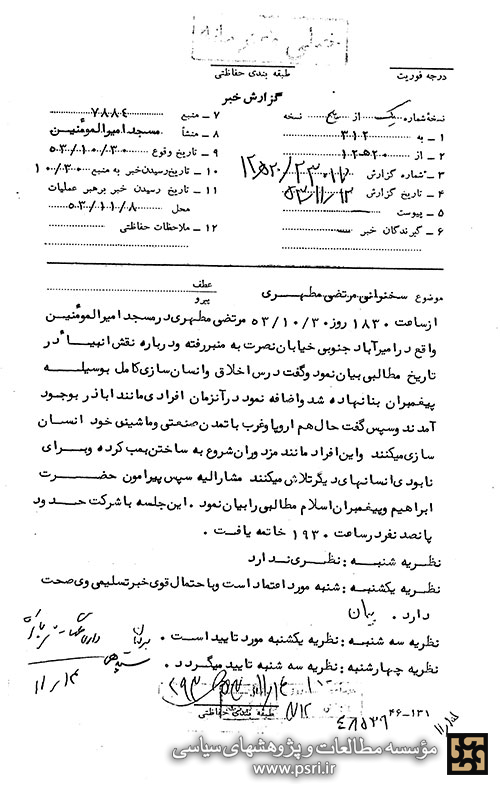 خیلی محرمانه
درجه فوریت
طبقه بندی حفاظتی
گزارش خبر
نسخه شماره یک از پنج نسخه
۱ – به ۳۱۲
۲ – از ۲۰ ه‍ ۱۲
۳ – شماره گزارش
۴ – تاریخ گزارش ۵۳/۱۱/۱۲
۵ – پیوست
۶ – گیرندگان خبر
۷ – منبع ۷۸۸۴
۸ – منشأ مسجد امیرالمومنین
۹ – تاریخ وقوع ۵۳/۱۰/۳۰
۱۰ – تاریخ رسیدن خبر به منبع ۱۰/۳۰
۱۱ – تاریخ رسیدن خبر برهبر عملیات
محل ۵۳/۱۱/۸
۱۲ – ملاحظات حفاظتی
موضوع سخنرانی مرتضی مطهری
عطف
پیرو
از ساعت ۱۸۳۰ روز ۵۳/۱۰/۳۰ مرتضی مطهری در مسجد امیرالمومنین
واقع در امیرآباد جنوبی خیابان نصرت به منبر رفته و درباره نقش انبیاء در
تاریخ مطالبی بیان نمود و گفت درس اخلاق وانسان سازی کامل بوسیله
پیغمبران بنا نهاده شد و اضافه نمود در آنزمان افرادی مانند اباذر بوجود
آمدند وسپس گفت حال هم اروپا وغرب با تمدن صنعتی وماشینی خود انسان
سازی میکنند واین افراد مانند مزدوران شروع به ساختن بمب کرده وبرای
نابودی انسانهای دیگر تلاش میکنند مشارالیه سپس پیرامون حضرت
ابراهیم وپیغمبران اسلام مطالبی را بیان نمود . این جلسه با شرکت حدود
پانصد نفر در ساعت ۱۹۳۰ خاتمه یافت .
نظریه شنبه : نظری ندارد
نظریه یکشنبه : شنبه مورد اعتماد است وبا احتمال قوی خبر تسلیمی وی صحت
دارد . بیان
نظریه سه شنبه : نظریه یکشنبه مورد تایید است .
نظریه چهارشنبه : نظریه سه شنبه تایید میگردد .
۱۱/۱۴
طبقه بندی حفاظتی
۴۶–۱۳۱
مؤسسه مطالعات و پژوهشهای سیاسی
www.psri.ir